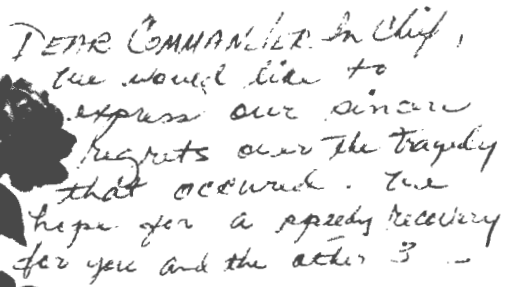 DEAR COMMANDER In Chief,
We would like to
express our sincere
regrets over the tragedy
that occured. We
hope for a speedy recovery
for you and the other 3 -